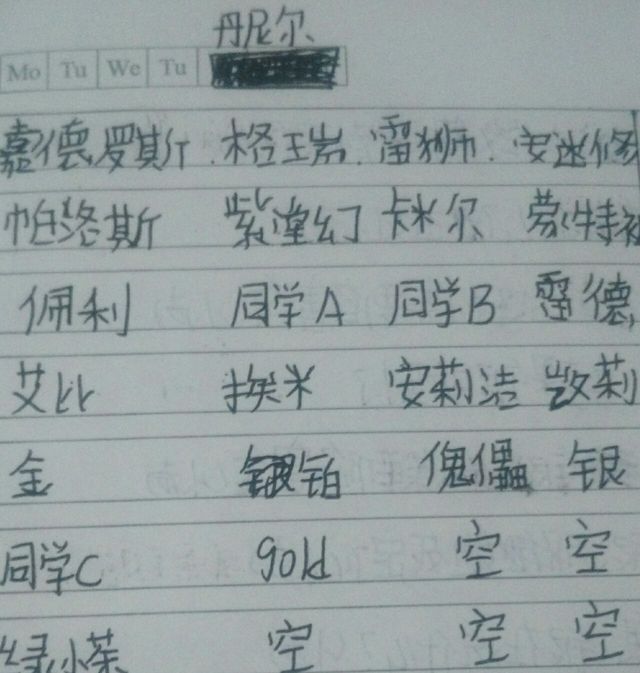 丹尼尔
Mo Tu We Tu
嘉德罗斯.格瑞.雷狮.安迷修
帕洛斯 紫堂幻 卡米尔 蒙特祖
佩利 同学A 同学B 雷德,
艾比 埃米 安莉洁 凯莉
金 银铂 傀儡 银
同学C gold 空 空
绿小茶 空 空 空